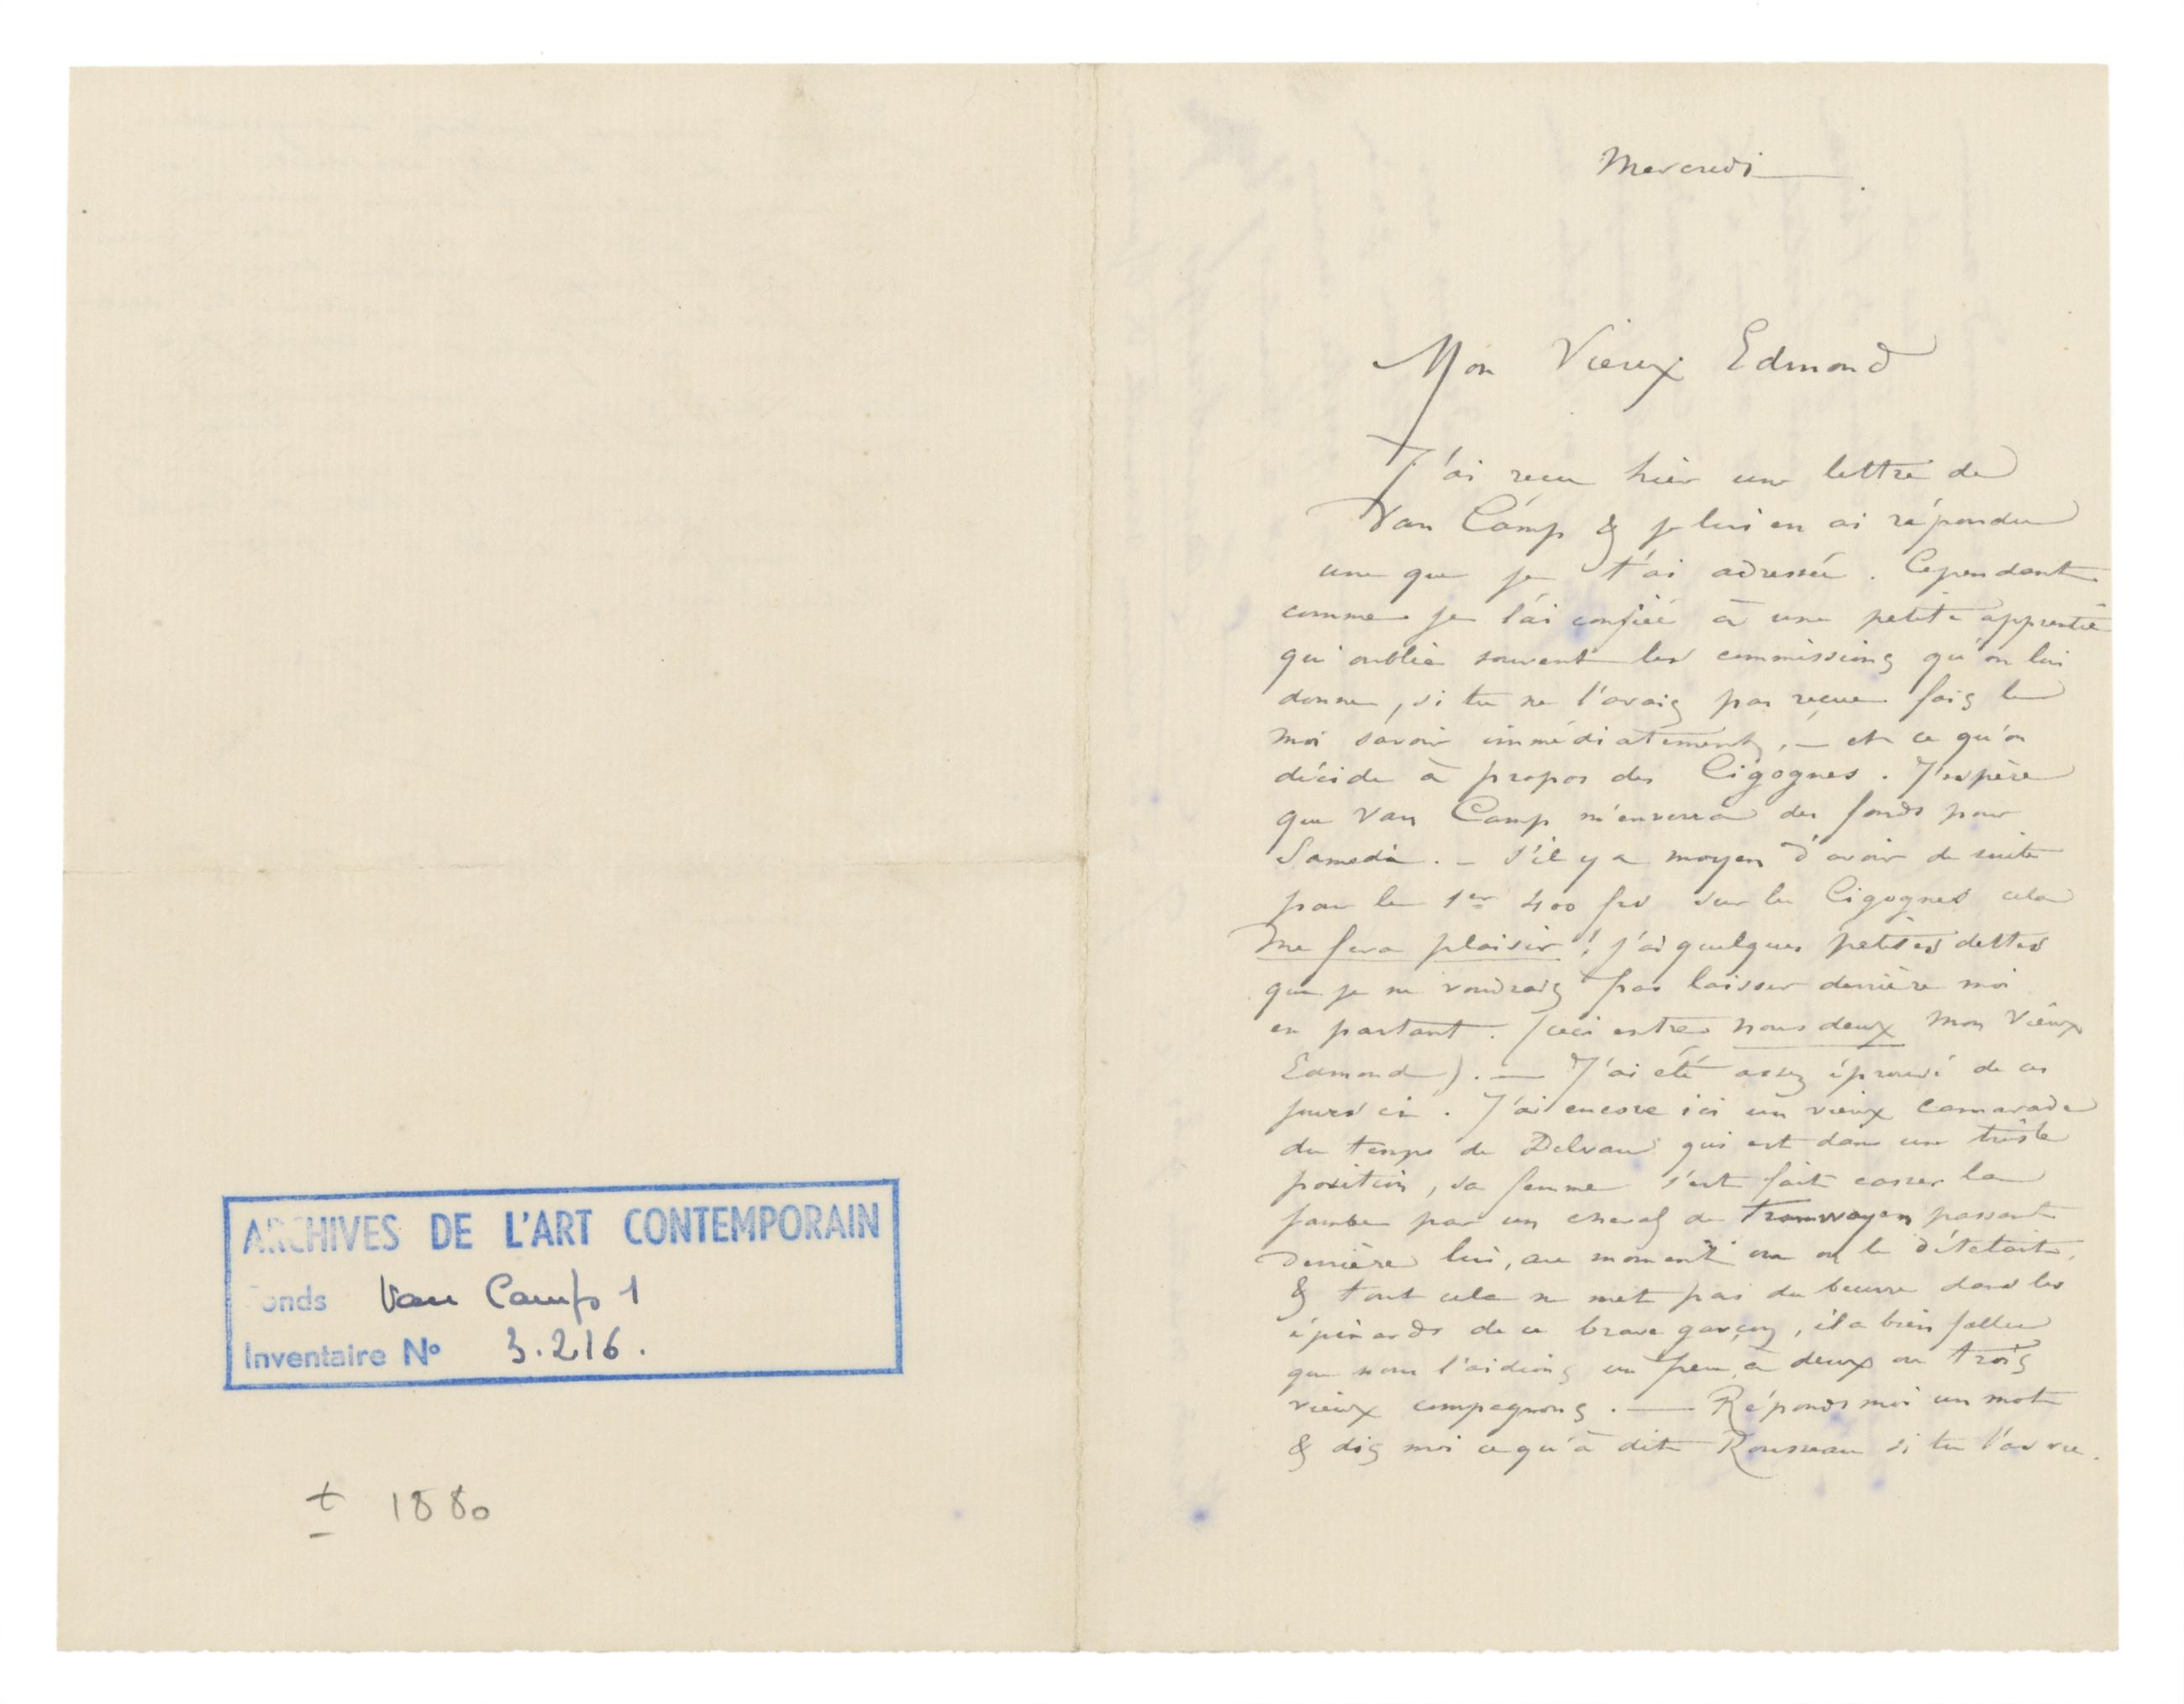 ARCHIVES DE L'ART CONTEMPORAIN
Fonds Van Camp 1
Inventaire N° 3.216.
± 1880
Mercredi
Mon Vieux Edmond
J'ai reçu hier une lettre de
Van Camp & je lui en ai répondu
une que je t'ai adressée. Cependant
comme je l'ai confiée à une petite apprentie
qui oublie souvent les commissions qu'on lui
donne, si tu ne l'avais pas reçue fais le
moi savoir immédiatement, — et ce qu'on
décide à propos des Cigognes. J'espère
que Van Camp m'enverra des fonds pour
Samedi. — S'il y a moyen d'avoir de suite
pour le 1er 400 frs sur les Cigognes cela
me fera plaisir! j'ai quelques petites dettes
que je ne voudrais pas laisser derrière moi
en partant. (ceci entre nous deux mon vieux
Edmond). — J'ai été assez éprouvé de ces
jours ci. J'ai encore ici un vieux camarade
du temps de Delvau qui est dans une triste
position, sa femme s'est fait casser la
jambe par un cheval de tramway en passant
derrière lui, au moment où on le dételait,
& tout cela ne met pas du beurre dans les
épinards de ce brave garçon, il a bien fallu
que nous l'aidions un peu à deux ou trois
vieux compagnons. — Réponds moi un mot
& dis moi ce qu'à dit Rousseau si tu l'as vu.